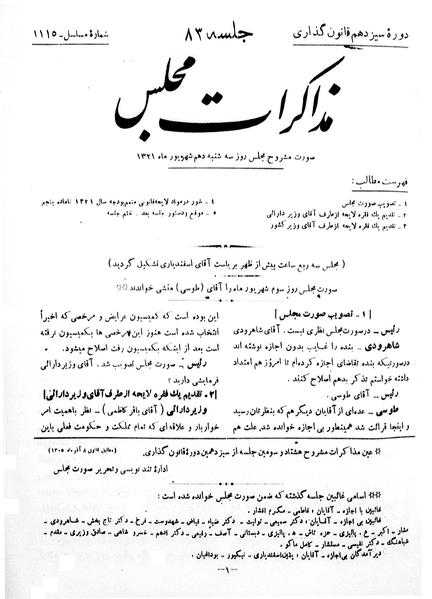 دورهٔ سیزدهم قانون گذاری
جلسه ۸۳
شمارهٔ مسلسل - ۱۱۱۵
مذاکرات مجلس
صورت مشروح مجلس روز سه شنبه دهم شهریور ماه ۱۳۲۱
فهرست مطالب:
۱ - تصویب صورت مجلس
۲ - تقدیم یك فقره لایحه از طرف آقای وزیر دارائی
۳ - تقدیم یك فقره لایحه از طرف آقای وزیر کشور
۴ - شور در مواد لایحه قانونی متمم بودجه سال ۱۳۲۱ تا ماده پنجم
۵ - موقع و دستور جلسه بعد - ختم جلسه
( مجلس سه ربع ساعت پیش از ظهر بریاست آقای اسفندیاری تشکیل گردید )
صورت مجلس روز سوم شهریور ماه را آقای (طوسی) منشی خواندند
[ ۱ - تصویب صورت مجلس ]
رئیس - در صورت مجلس نظری نیست. آقای شاهرودی.
شاهرودی - بنده را غایب بدون اجازه نوشته اند
در صورتیکه بنده تقاضای اجازه کرده‌ام تا امروز هم امتداد
داشته خواستم تذکر بدهم اصلاح کنند.
رئیس - آقای طوسی.
طوسی - عده‌ای از آقایان دیگر هم که بنظرتان رسید
و اینجا قرائت شد همینطور بی اجازه خوانده شد، علت هم
این بوده است که کمیسیون عرایض و مرخصی که اخیراً
انتخاب شده است هنوز این مرخصی ها بکمیسیون نرفته
است بعد از اینکه بکمیسیون رفت اصلاح میشود.
رئیس - صورت مجلس تصویب شد. آقای وزیر دارائی
فرمایشی دارید؟
[ ۲ - تقدیم یك فقره لایحه از طرف آقای وزیر دارائی ]
وزیر دارائی (آقای باقر کاظمی) - نظر باهمیت امر
خواربار و علاقه‌ای که تمام مملکت و حکومت فعلی باین
عین مذاکرات مشروح هشتاد و سومین جلسه از سیزدهمین دورهٔ قانون گذاری
(مطابق قانون ۸ آذر ماه ۱۳۰۵)
ادارهٔ تند نویسی و تحریر صورت مجلس
اسامی غائبین جلسه گذشته که ضمن صورت مجلس خوانده شده است:
غائبین با اجازه - آقایان: فاطمی - مکرم افشار
غائبین بی اجازه - آقایان - دکتر سمیعی - تولیت - دکتر ضیاء - نباض - شهدوست - فرخ - دکتر تاج بخش - شاهرودی -
مشار - اکبر - ع. پالیزی - حمزه تاش - ه. پالیزی - دبستانی - آصف - رفیعی - دکتر ادهم - خسرو شاهی - صادق وزیری - مقدم -
شباهنگ - دکتر نفیسی - مستشار - کامل ماکو.
دیر آمدگان بی اجازه - آقایان: یمین اسفندیاری - نیکپور - بوداغیان
-۱-